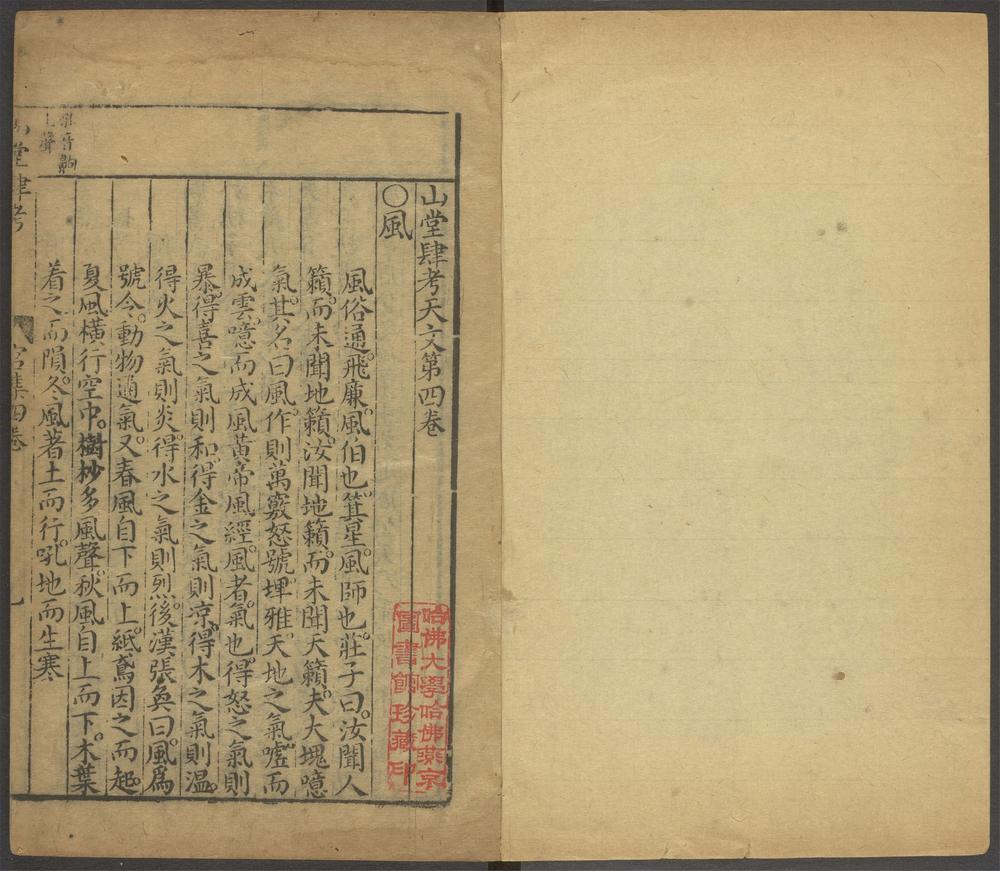 山堂肆考天文第四卷
○風
風俗通飛廉風伯也箕星風師也莊子曰汝聞人
籟而未聞地籟汝聞地籟而未聞天籟夫大塊噫
氣其名曰風作則萬竅怒號埤雅天地之氣噓而
成雲噫而成風黃帝風經風者氣也得怒之氣則
暴得喜之氣則和得金之氣則凉得木之氣則溫
得火之氣則炎得水之氣則烈後漢張奐曰風爲
號令動物通氣又春風自下而上紙鳶因之而起
夏風橫行空中樹杪多風聲秋風自上而下木葉
着之而隕冬風著土而行吼地而生寒
山堂肆考
宮集四卷
哈佛大學哈佛燕京
圖書館珍藏印